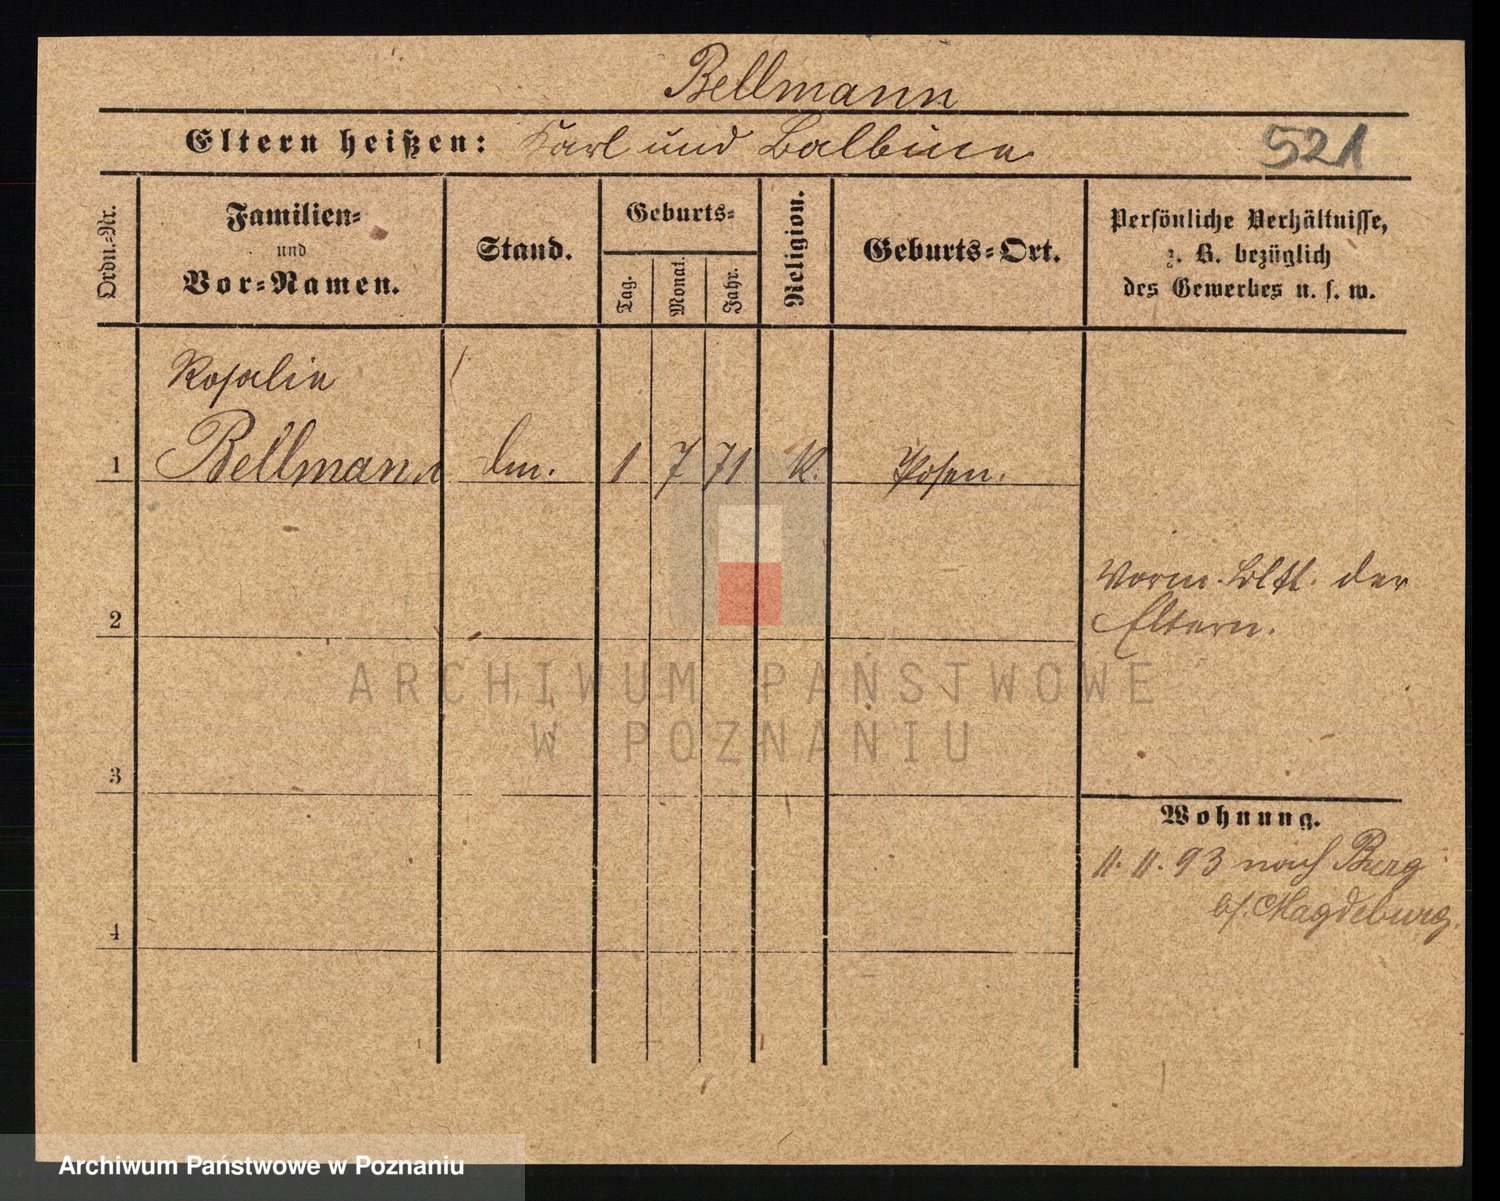 Bellmann
Eltern heißen: Karl und Balbine
521
Ordn.-Nr.
Familien-
und
Vor-Namen.
Stand.
Geburts-
Tag.
Monat.
Jahr.
Religion.
Geburts-Ort.
Persönliche Verhältnisse,
z. B. bezüglich
des Gewerbes u. s. w.
Rosalie
1 Bellmann 1 7 71 K. Posen.
2
der
Eltern.
3
Wohnung.
11. 11. 93 nach Burg
b/. Magdeburg.
4
ARCHIWUM PAŃSTWOWE
W POZNANIU
Archiwum Państwowe w Poznaniu